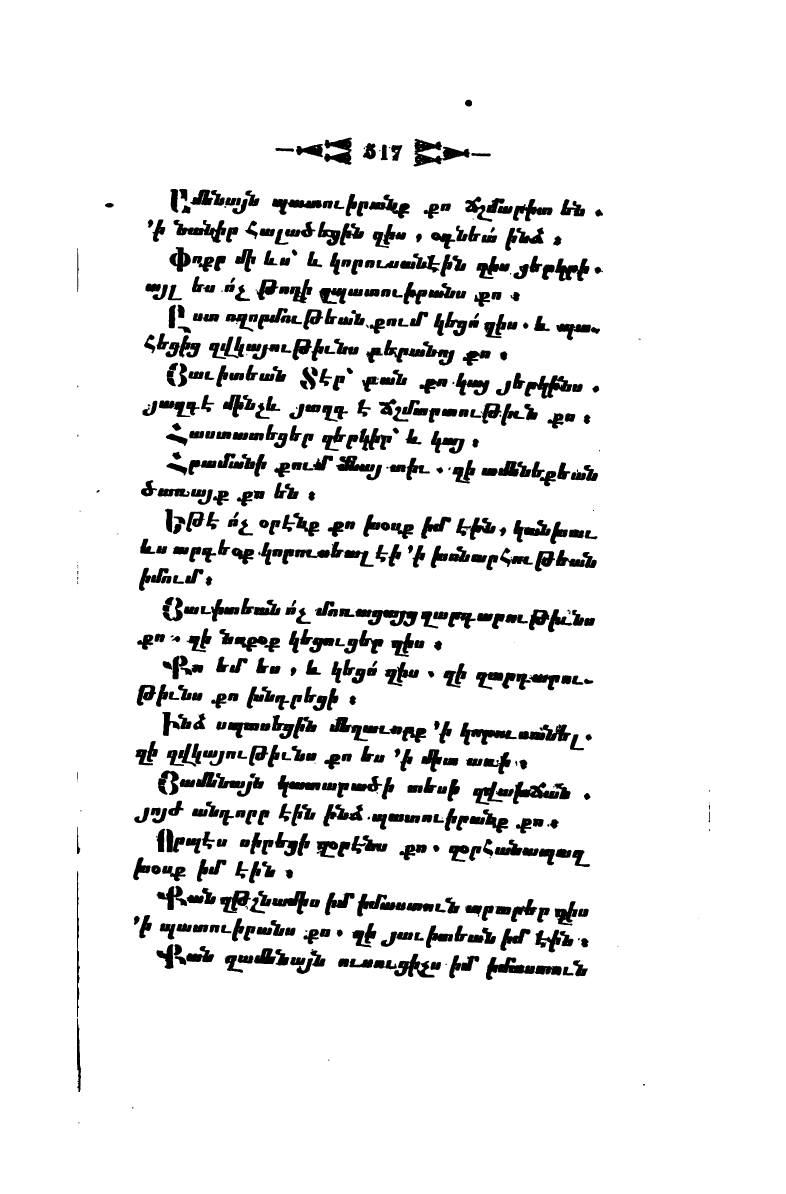 517
Ամենայն պատուիրանք քո ճշմարիտ են .
՚ի նանիր հալածեցին զիս , օգնեա՛ ինձ :
Փոքր մի ևս՝ և կորուսանէին զիս յերկրի .
այլ ես ո՛չ թողի զպատուիրանս քո :
Ըստ ողորմութեան քում կեցո՛ զիս . և պա֊
հեցից զվկայութիւնս բերանոյ քո :
Յաւիտեան Տէր՝ բան քո կայ յերկինս .
յազգէ մինչև յազգ է ճշմարտութիւն քո :
Հաստատեցեր զերկիր՝ և կայ :
Հրամանի քում մնայ տիւ . զի ամենեքեան
ծառայք քո են :
Եթէ ո՛չ օրէնք քո խօսք իմ էին , կանխաւ
ևս արդեօք կորուսեալ էի ՚ի խոնարհութեան
իմում :
Յաւիտեան ո՛չ մոռացայց զարդարութիւնս
քո . զի նոքօք կեցուցեր զիս :
Քո եմ ես , և կեցո՛ զիս . զի զարդարու֊
թիւնս քո խնդրեցի :
Ինձ սպասեցին մեղաւորք ՚ի կորուսանել .
զի զվկայութիւնս քո ես ՚ի միտ առի :
Յամենայն կատարածի տեսի զվախճան .
յոյժ անդորր էին ինձ պատուիրանք քո :
Որպէս սիրեցի զօրէնս քո . զօրհանապազ
խօսք իմ էին :
Քան զթշնամիս իմ իմաստուն արարեր զիս
՚ի պատուիրանս քո . զի յաւիտեան իմ էին :
Քան զամենայն ուսուցիչս իմ իմաստուն